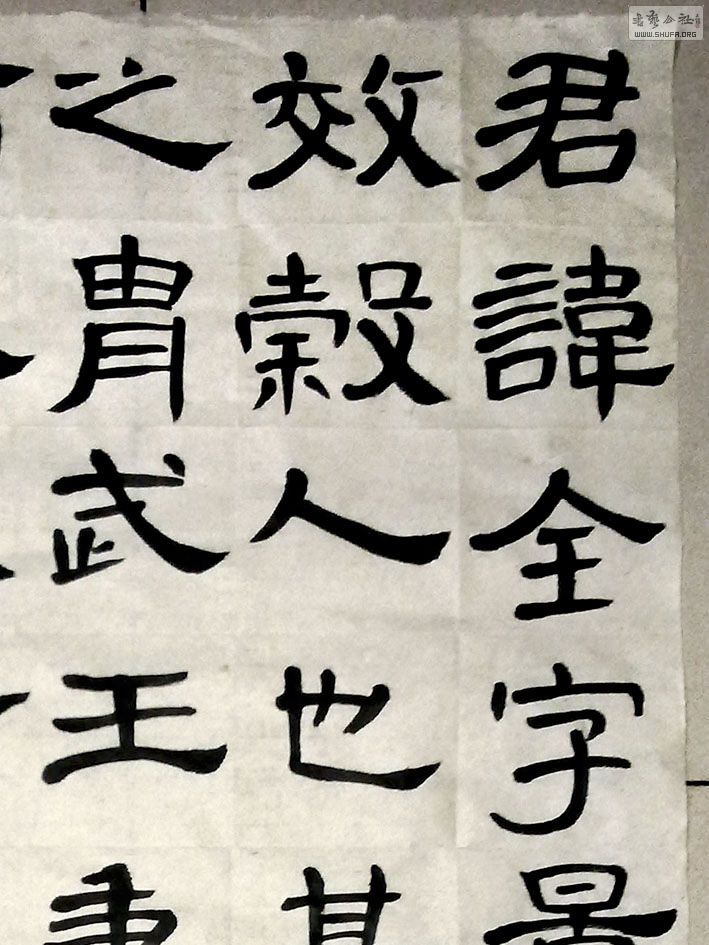 君諱全字景
效穀人也其
之胄武王秉
書藝公社
WWW.SHUFA.ORG